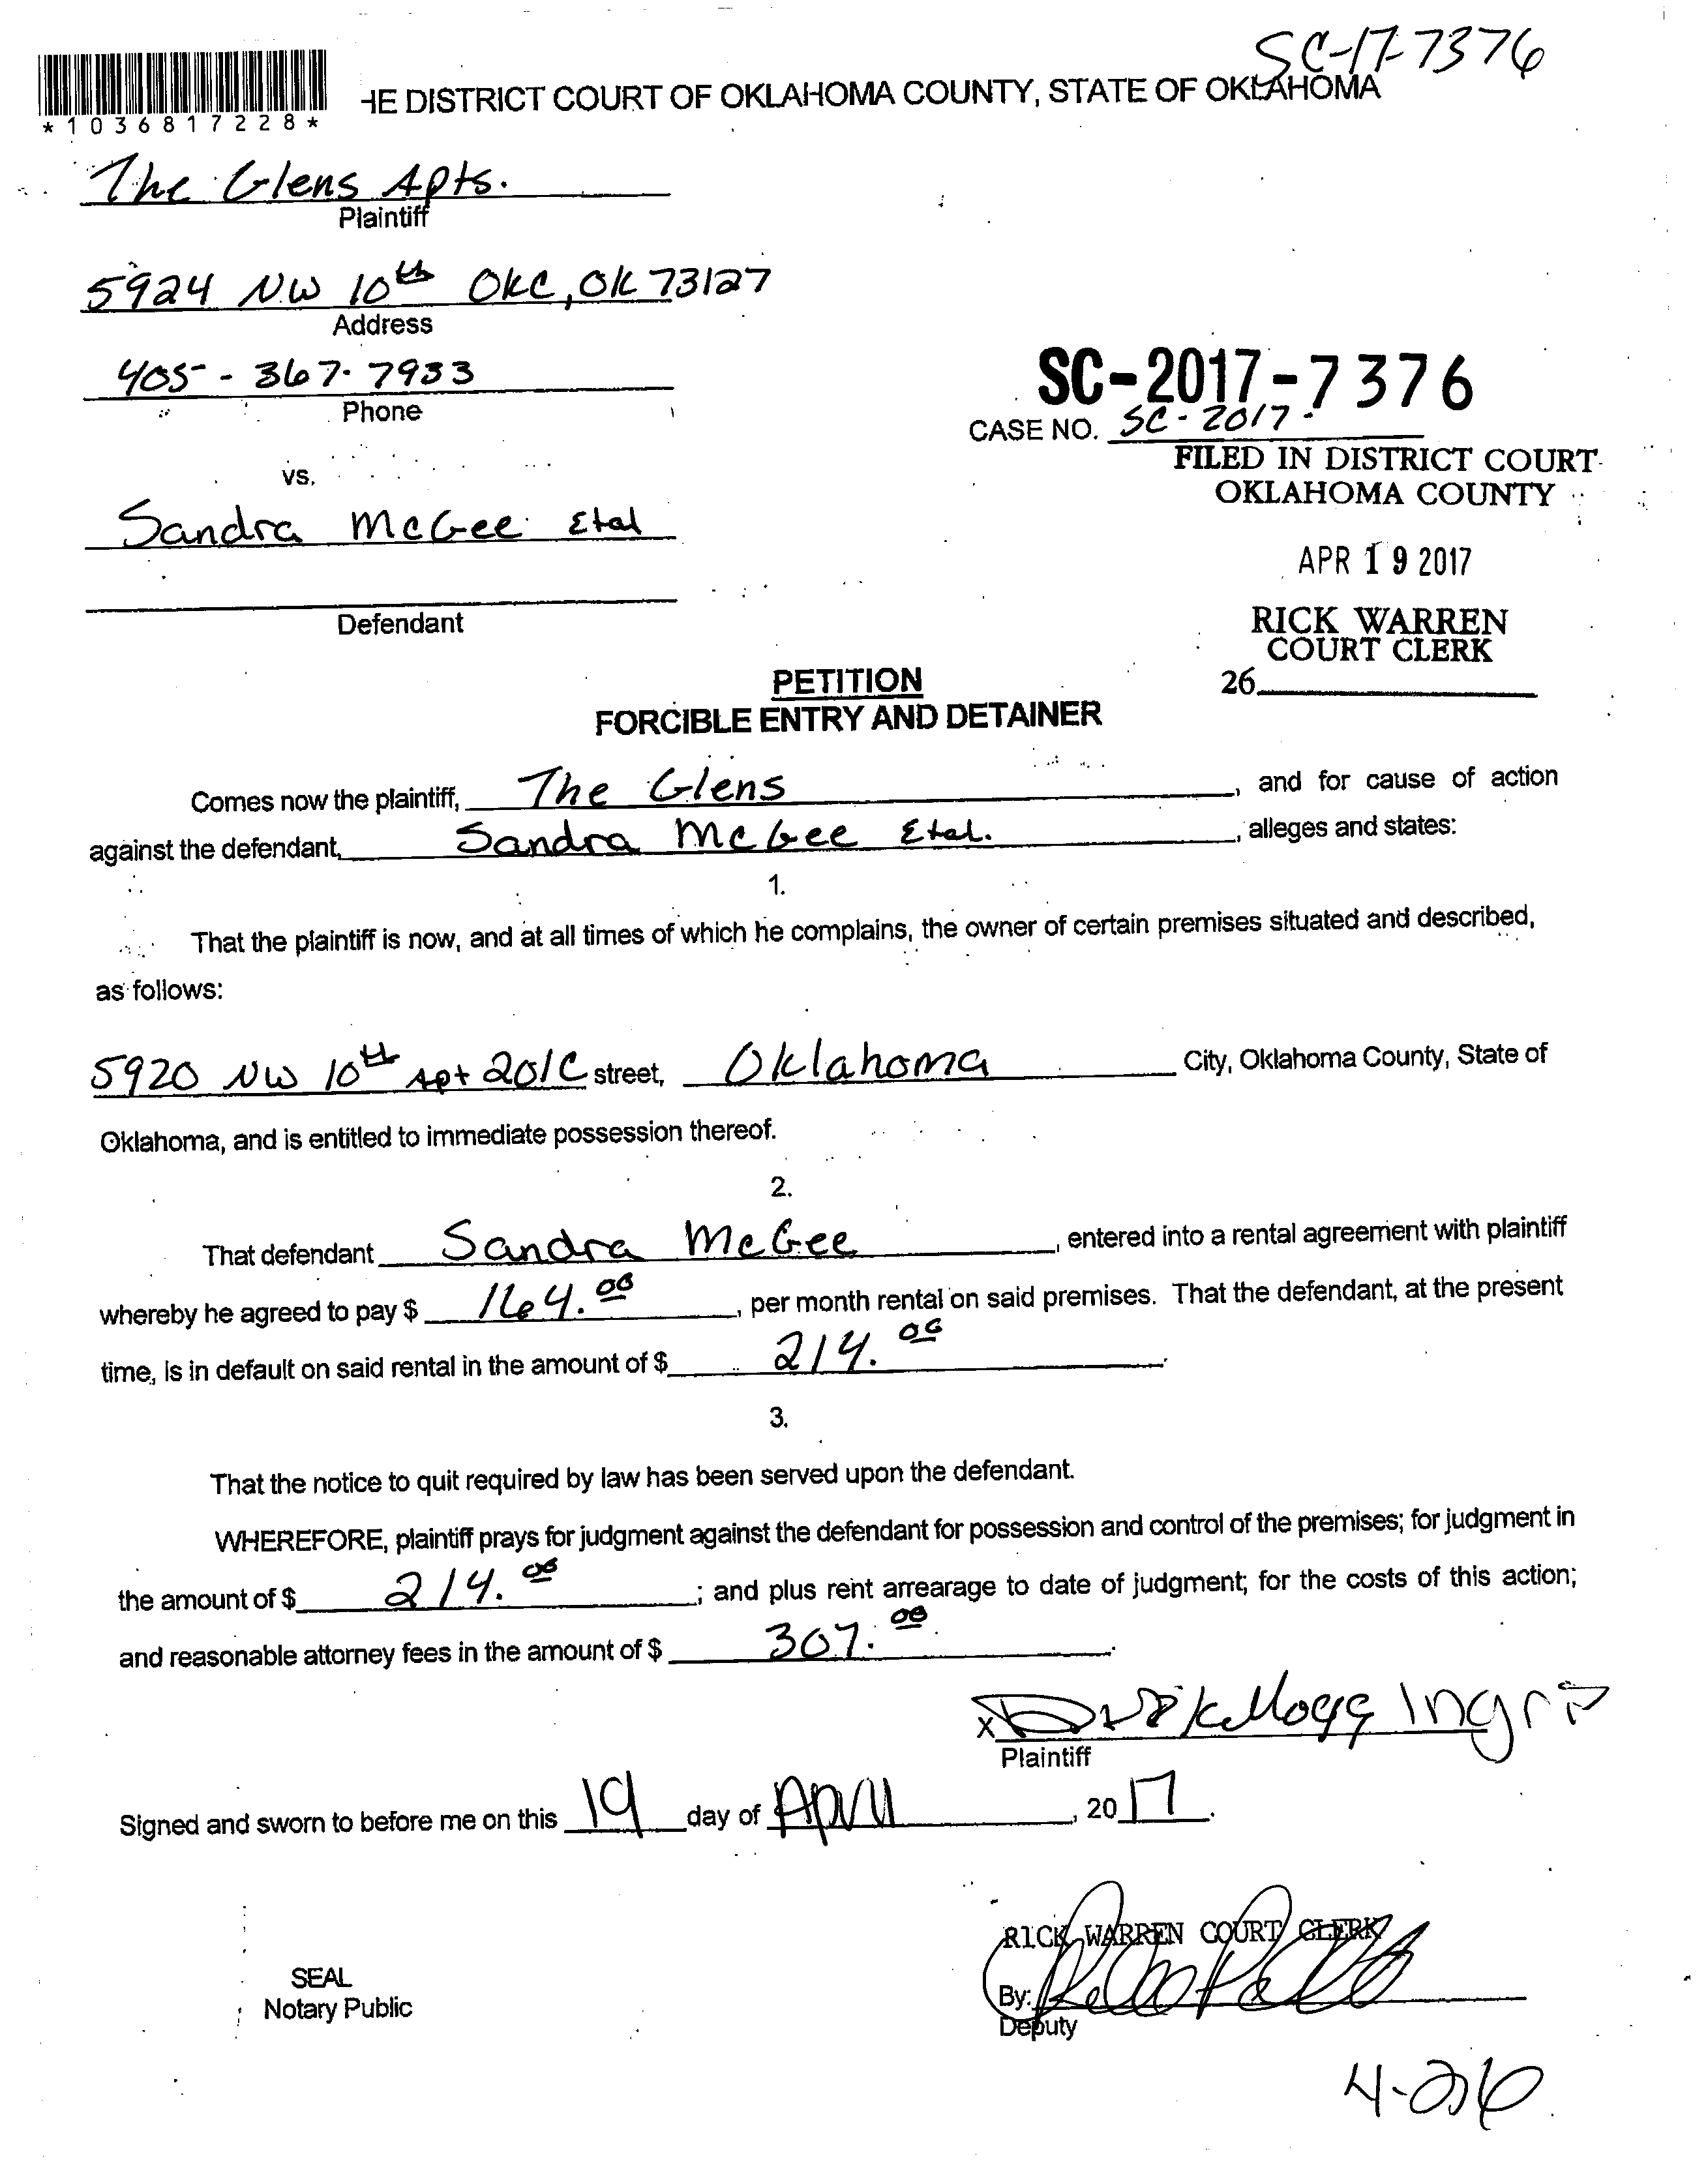 SC-17-7376
*1036817228*
HE DISTRICT COURT OF OKLAHOMA COUNTY, STATE OF OKLAHOMA
The Glens Apts.
Plaintiff
5924 NW 10th OKC, OK 73127
Address
405-367-7933
Phone
SC-2017-7376
CASE NO. SC-2017-
vs.
FILED IN DISTRICT COURT
OKLAHOMA COUNTY
Sandra McGee Etal
APR 19 2017
Defendant
RICK WARREN
COURT CLERK
26
PETITION
FORCIBLE ENTRY AND DETAINER
Comes now the plaintiff, The Glens, and for cause of action
against the defendant, Sandra McGee Etal., alleges and states:
1.
That the plaintiff is now, and at all times of which he complains, the owner of certain premises situated and described,
as follows:
5920 NW 10th Apt 201C street, Oklahoma City, Oklahoma County, State of
Oklahoma, and is entitled to immediate possession thereof.
2.
That defendant Sandra McGee, entered into a rental agreement with plaintiff
whereby he agreed to pay $ 164.00, per month rental on said premises. That the defendant, at the present
time, is in default on said rental in the amount of $ 214.00.
3.
That the notice to quit required by law has been served upon the defendant.
WHEREFORE, plaintiff prays for judgment against the defendant for possession and control of the premises; for judgment in
the amount of $ 214.00; and plus rent arrearage to date of judgment; for the costs of this action;
and reasonable attorney fees in the amount of $ 307.00.
X Kellogg
Plaintiff
Signed and sworn to before me on this 19 day of April, 2017.
RICK WARREN COURT CLERK
SEAL
Notary Public
By:
Deputy
4-26